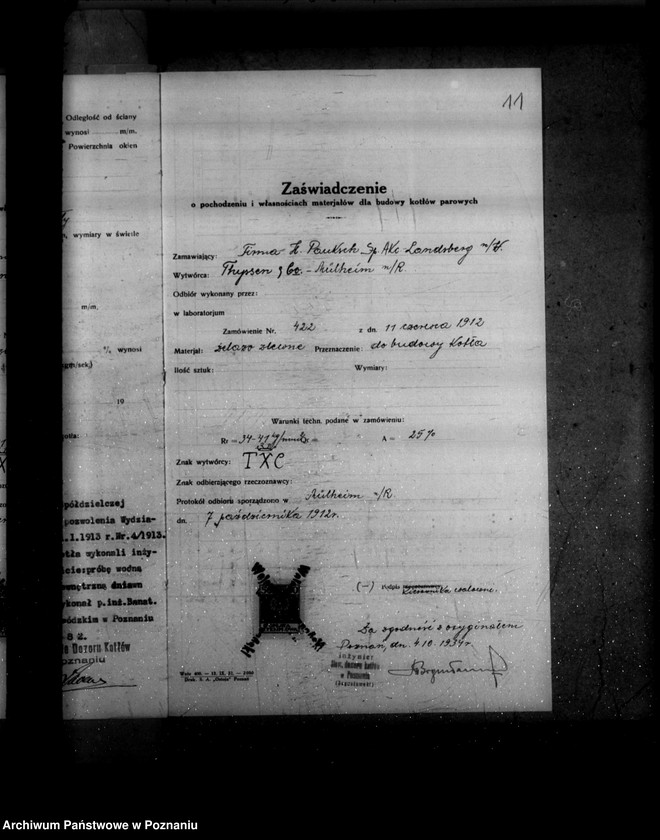 Odległość od ściany
wynosi m/m.
Powierzchnia okien
wymiary w świetle
m/m.
% wynosi
19
półdzielczej
pozwolenia Wydzia-
.1.1913 r.Nr.4/1913.
tła wykonali inży-
cie:próbę wodną
wnętrzną dniawn
konał p.inż.Banat.
wódzkim w Poznaniu
8 2.
Dozoru Kotłów
oznaniu
11
Zaświadczenie
o pochodzeniu i własnościach materjałów dla budowy kotłów parowych
Zamawiający: Firma H. Pauksch Sp. Akc. Landsberg n/W.
Wytwórca: Thyssen & Co. - Mülheim n/R.
Odbiór wykonany przez:
w laboratorjum
Zamówienie Nr. 422 z dn. 11 czerwca 1912
Materjał: żelazo zlewne Przeznaczenie: do budowy kotła
Ilość sztuk: Wymiary:
Warunki techn. podane w zamówieniu:
Rr = 34-41 kg/mm2 A = 25%
Znak wytwórcy: TXC
Znak odbierającego rzeczoznawcy:
Protokół odbioru sporządzono w Mülheim n/R.
dn. 7 października 1912r.
(—) Podpis kierownika walcowni.
Za zgodność z oryginałem
Poznań, dn. 4.10.1934r.
Inżynier
Stow. dozoru kotłów
w Poznaniu